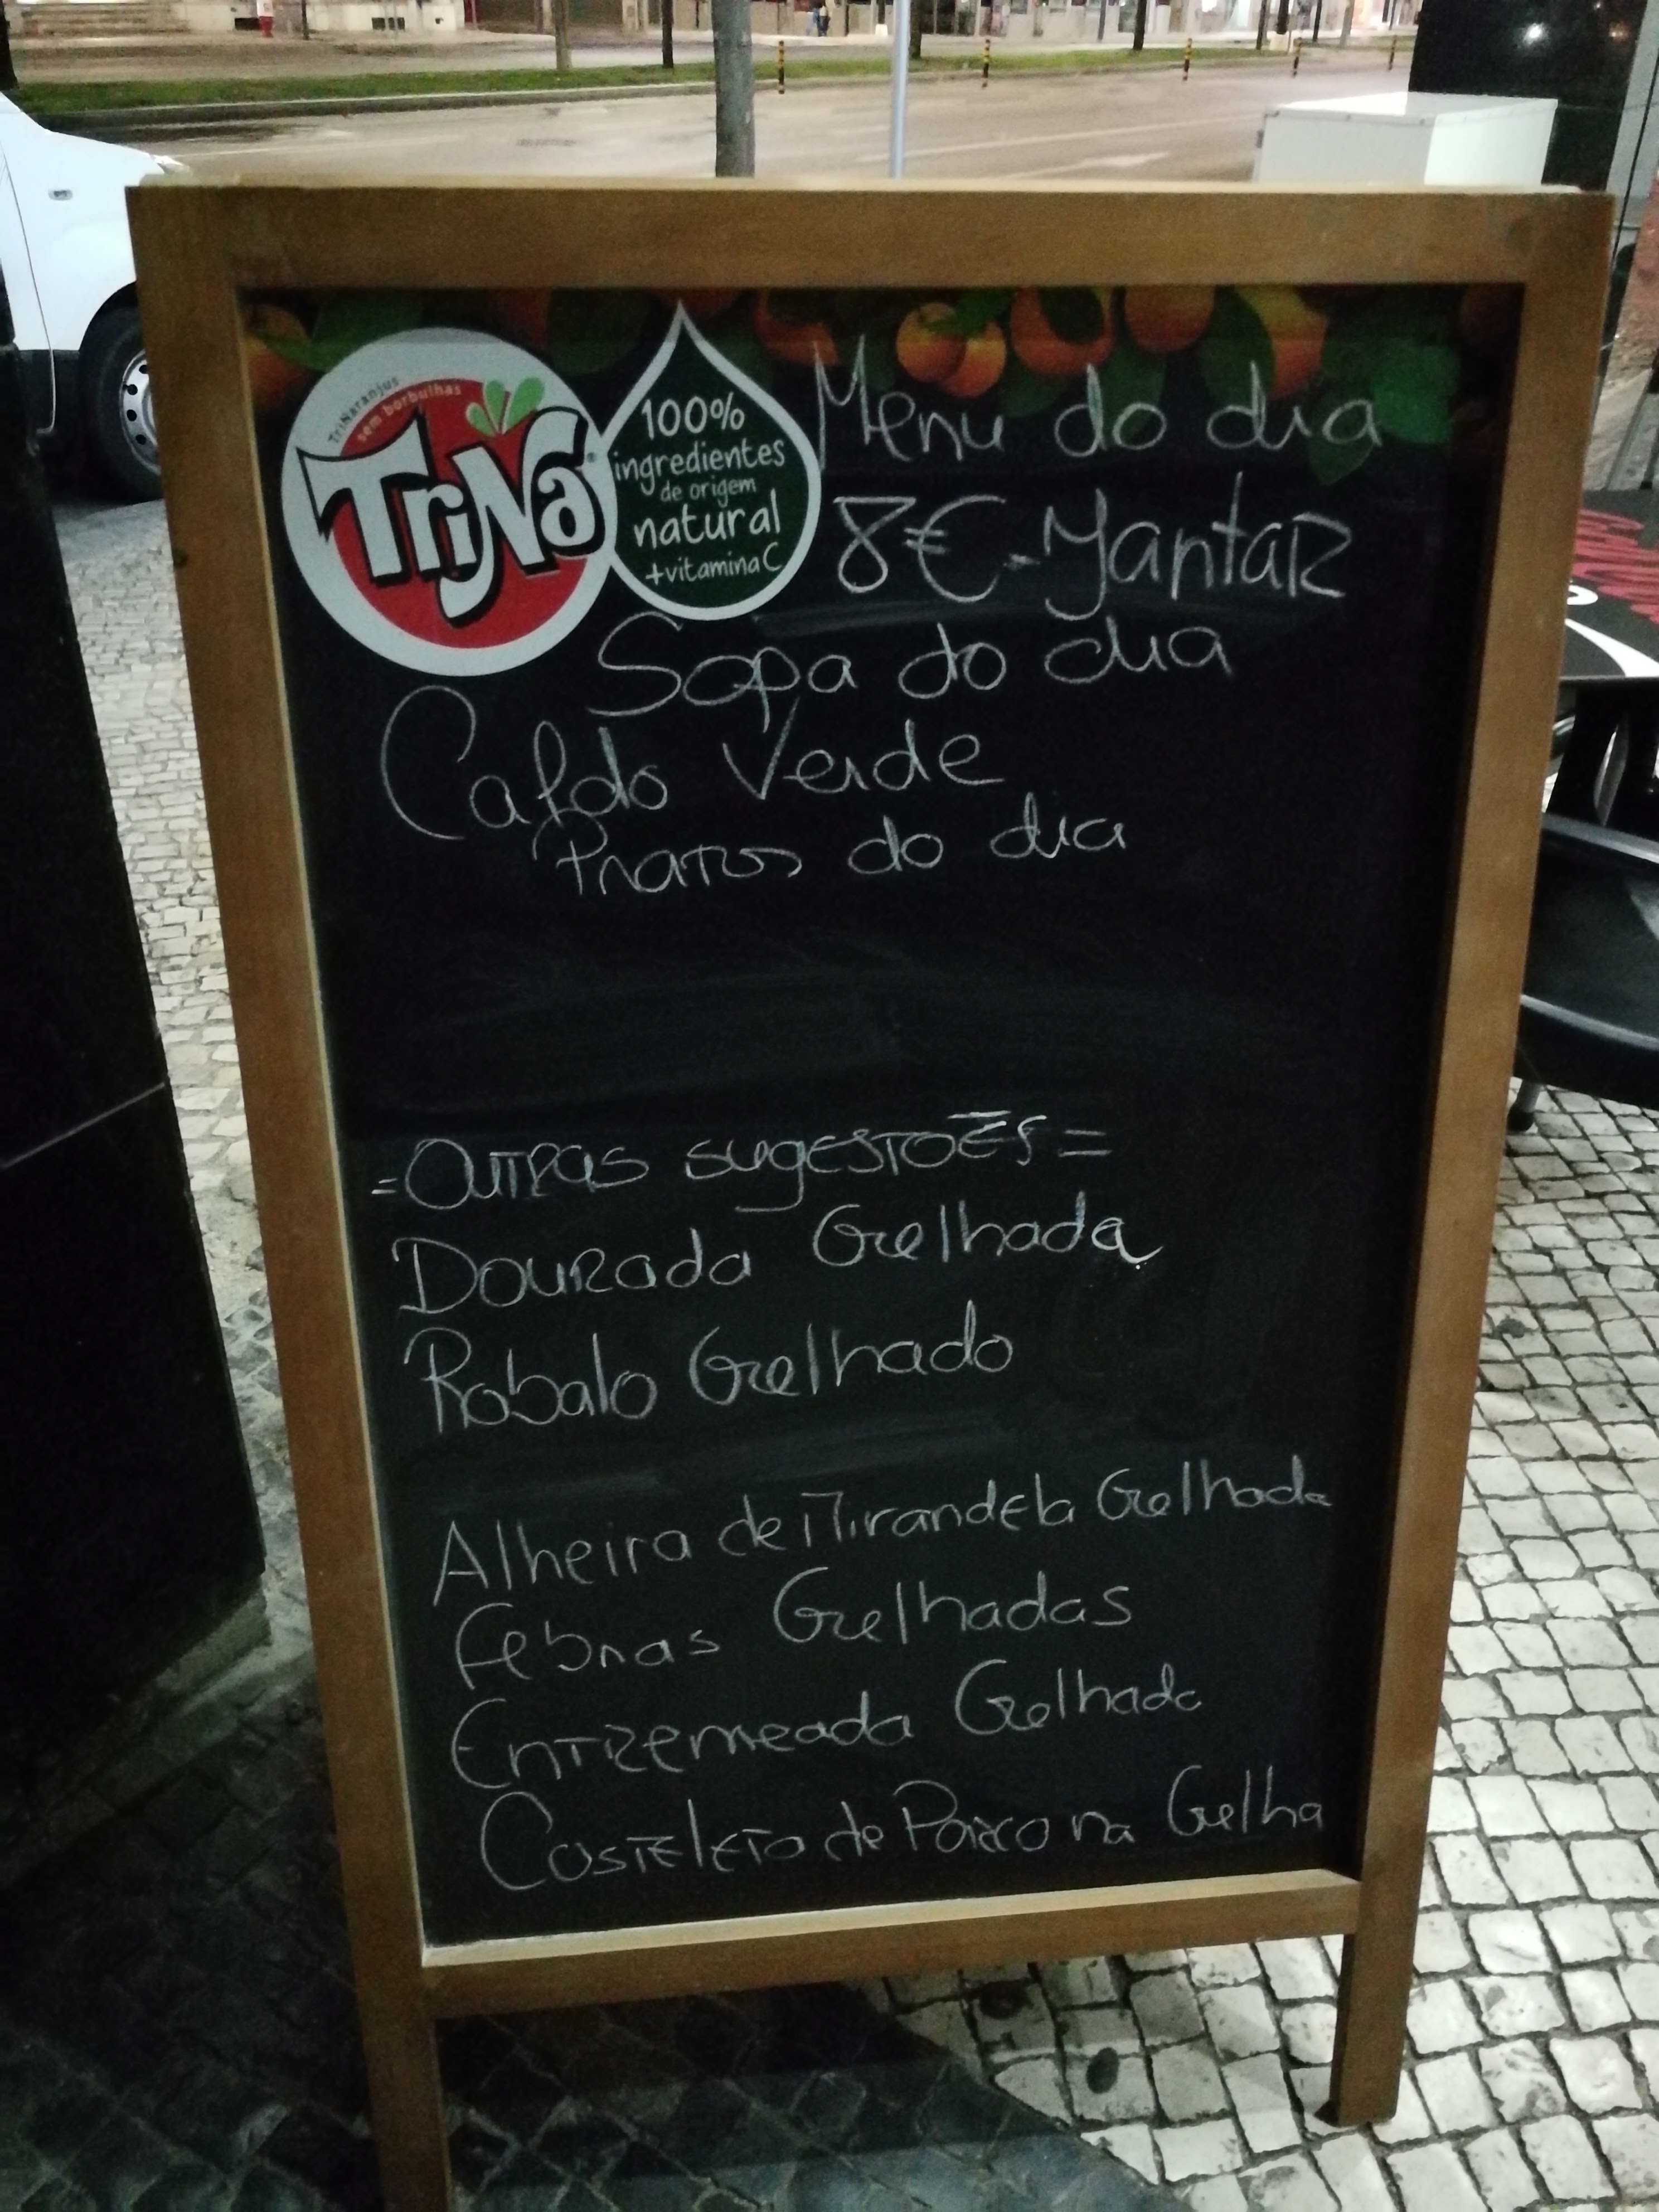 TriNaranjus
sem borbulhas
TriNa
100%
ingredientes
de origem
natural
+vitamina C
Menu do dia
8€-Jantar
Sopa do dia
Caldo Verde
Pratos do dia
=Outras sugestões=
Dourada Grelhada
Robalo Grelhado
Alheira de Mirandela Grelhada
Febras Grelhadas
Entremeada Grelhada
Costeleto de Porco na Grelha